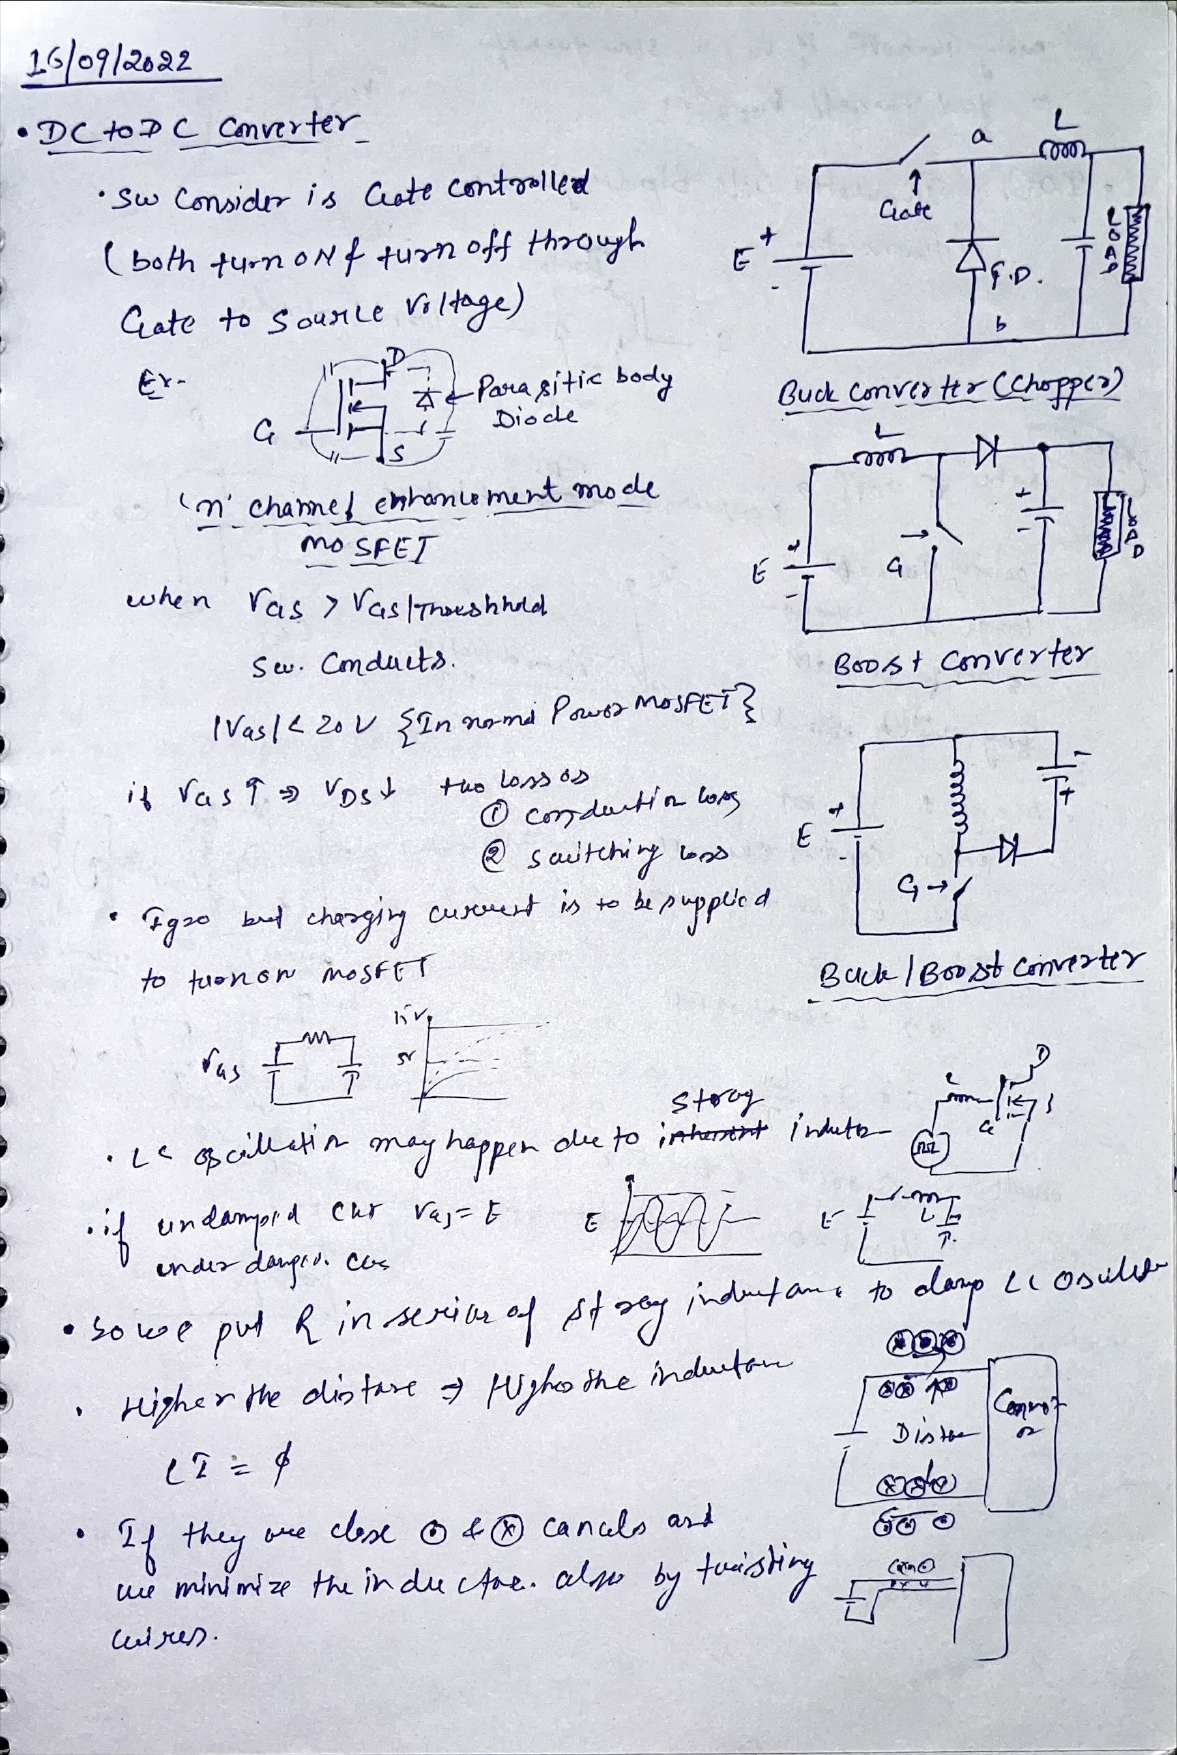 16/09/2022
• DC to DC Converter
• Sw Consider is Gate controlled
(both turn ON & turn off through
Gate to Source Voltage)
Ex-
D
G
S
Parasitic body
Diode
'n' channel enhancement mode
MOSFET
when VGS > VGS|Threshhold
Sw. Conducts.
|VGS| < 20 V {In normal Power MOSFET}
if VGS ↑ ⇒ VDS ↓ two losses
① conduction loss
② switching loss
• Ig=0 but charging current is to be supplied
to turn on MOSFET
VGS
15V
5V
• LC oscillation may happen due to stray inductor
• if undamped ckt VGS = E
under damped. cas
E
• So we put R in series of stray inductance to damp LC
• Higher the distance ⇒ Higher the inductance
LI = ϕ
• If they are close ⊙ & ⊗ cancels and
we minimize the inductance. also by twisting
wires.
L
a
Gate
E
+
-
F.D.
b
LOAD
Buck Converter (Chopper)
L
+
-
E
+
-
G
LOAD
Boost Converter
E
+
-
-
+
G →
Buck / Boost Converter
D
G
S
E
L